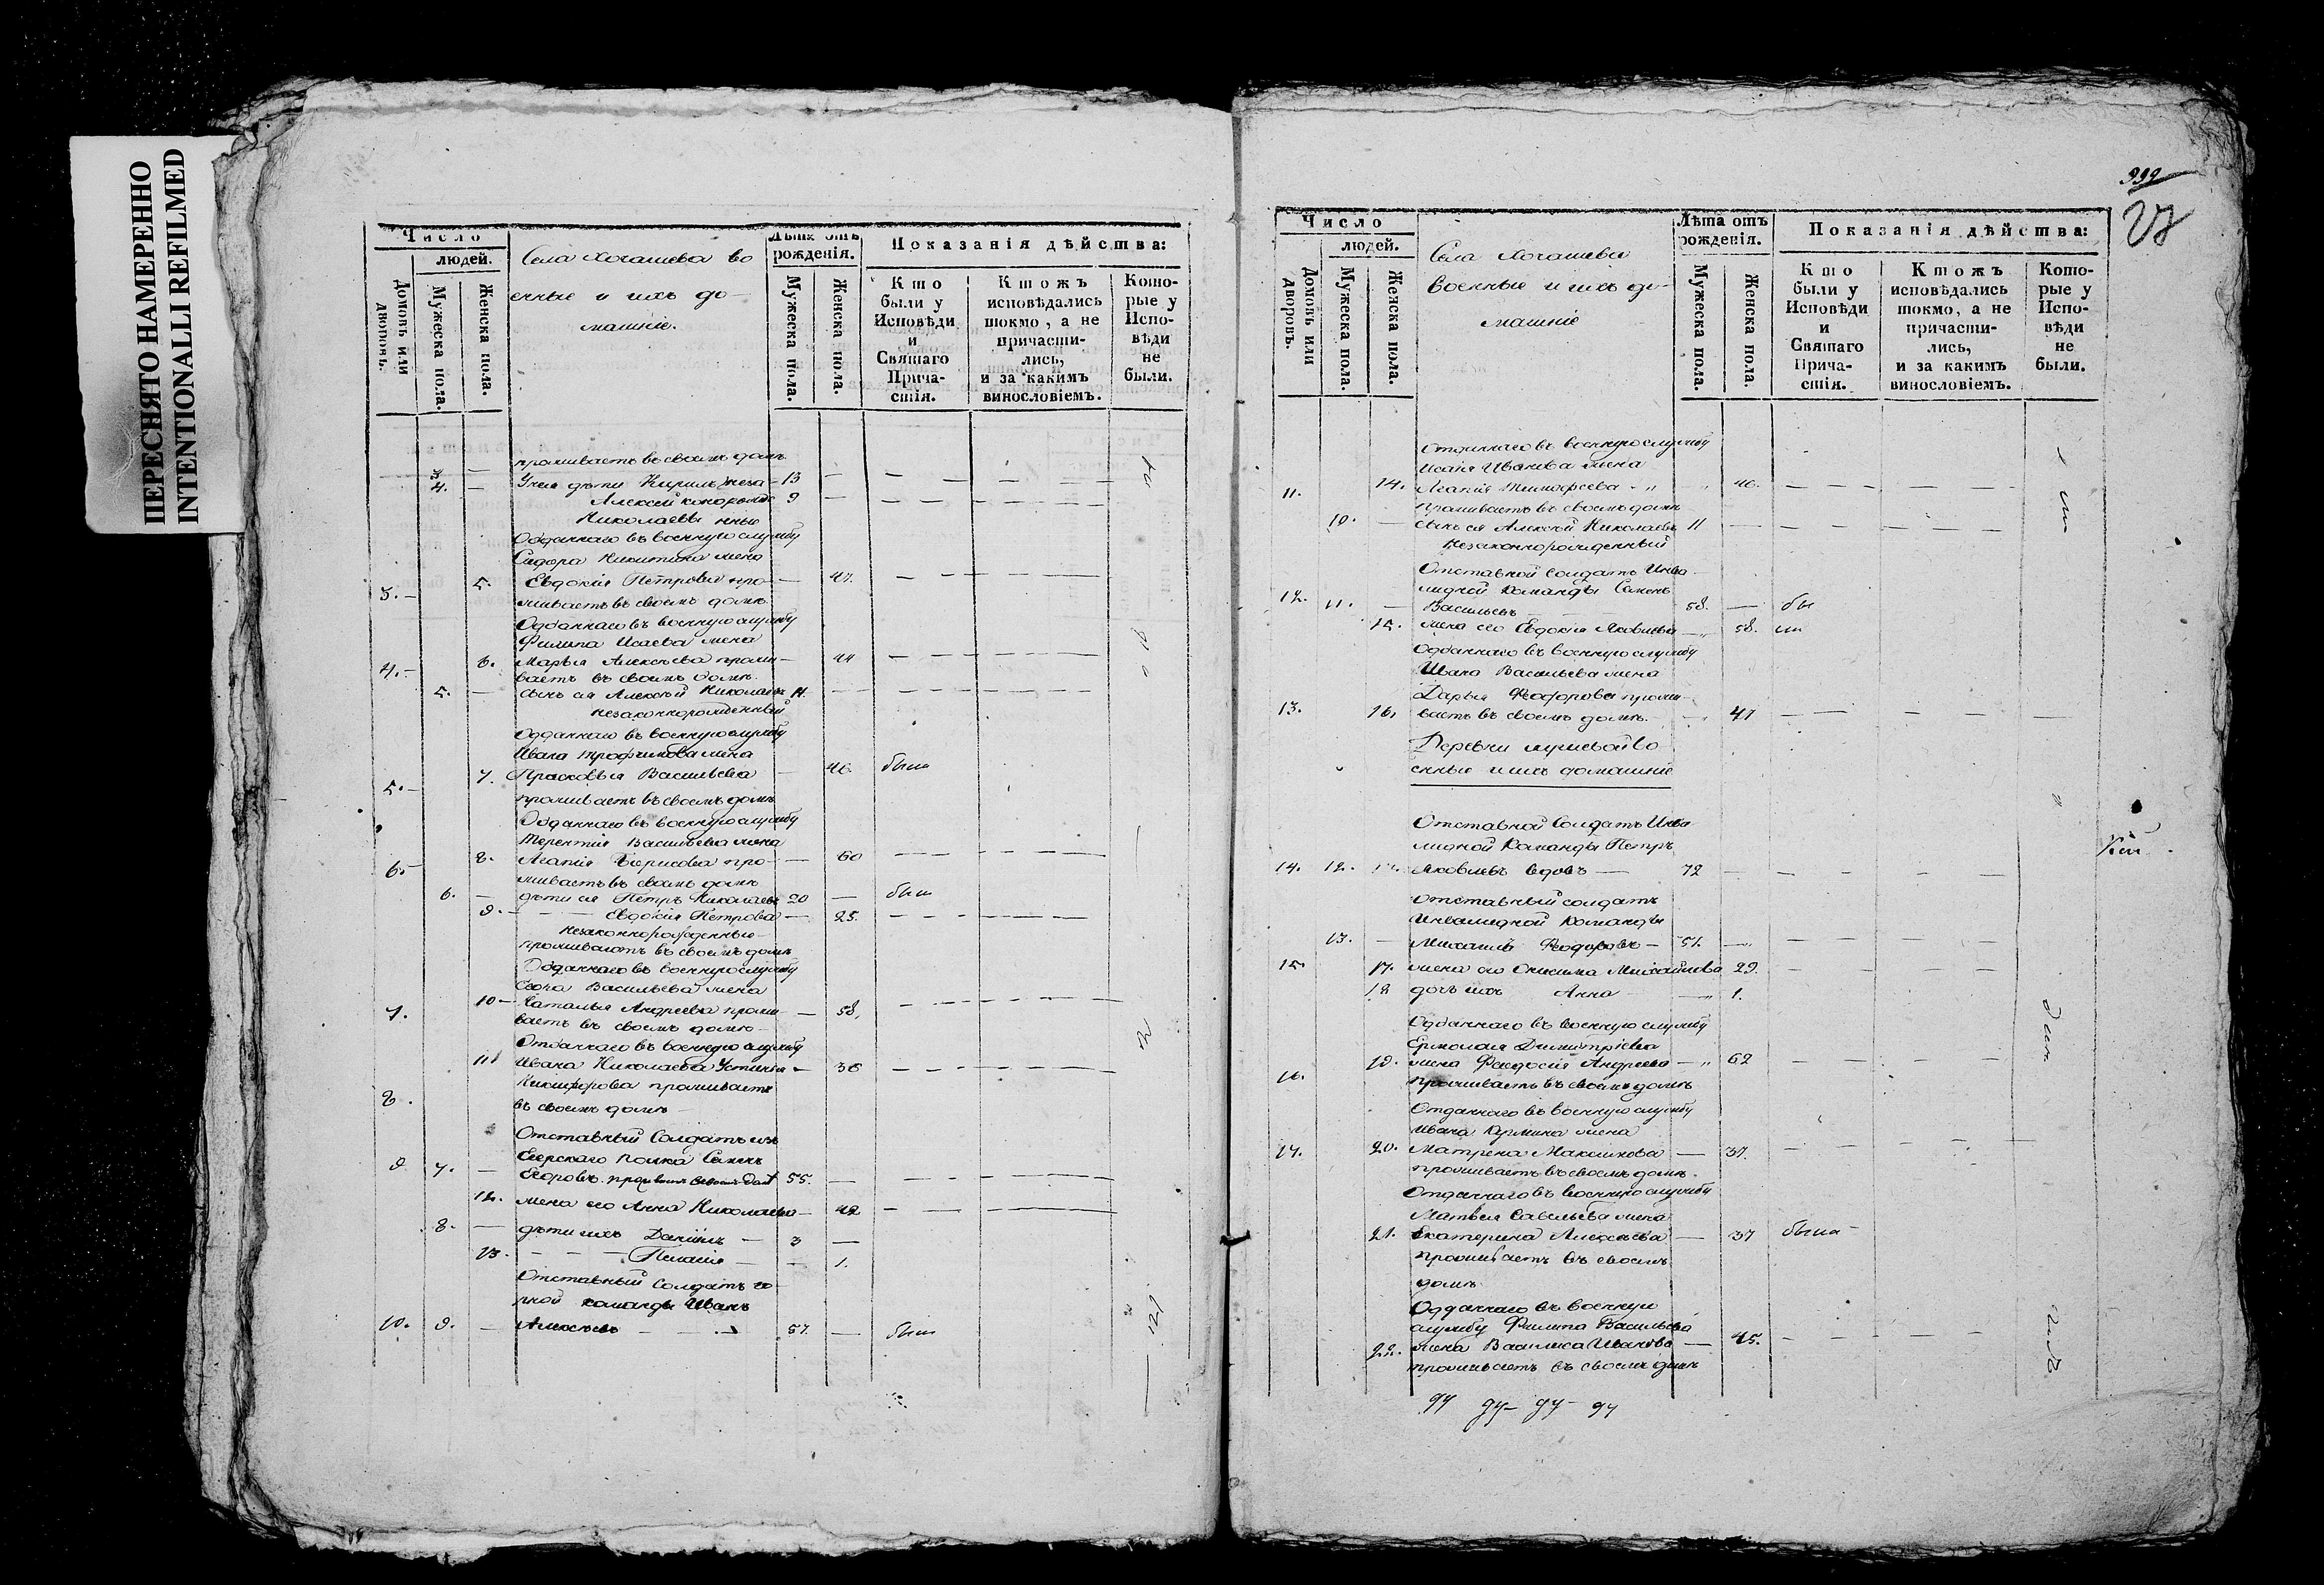 ПЕРЕСНЯТО НАМЕРЕННО
INTENTIONALLI REFILMED
Число
людей.
Домовъ или дворовъ.
Мужеска пола.
Женска пола.
Села Хочашева во
енные и ихъ до-
машніе.
Лѣта отъ
рожденія.
Мужеска пола.
Женска пола.
Показанія дѣйства:
Кто
были у
Исповѣди
и
Святаго
Прича-
стія.
Ктожъ
исповѣдались
токмо, а не
причасти-
лись,
и за какимъ
винословіемъ.
Кото-
рые у
Испо-
вѣди
не
были.
проживаетъ въ своемъ домѣ
3. —
4. — У нея дѣти Кирилъ 13 —
Алексѣй 9 —
Николаевы
Отданнаго въ военную службу
Сидора Никитина жена
3. — 5. Евдокія Петрова про- — 47.
живаетъ въ своемъ домѣ
Отданнаго въ военную службу
Филипа Исаева жена
4. — 6. Марья Алексѣева прожи- — 44
ваетъ въ своемъ домѣ.
5. — сынъ ея Алексѣй Николаевъ 11. —
незаконнорожденный
Отданнаго въ военную службу
Ивана Трофимова жена
5. — 7. Прасковья Васильева — 46 была
проживаетъ въ своемъ домѣ
Отданнаго въ военную службу
Терентія Васильева жена
6. — 8. Агапія Борисова про- — 60
живаетъ въ своемъ домѣ
6. — дѣти ея Петръ Николаевъ 20 — был
9. — Евдокія Петрова — 25.
незаконнорожденные
проживаютъ въ своемъ домѣ
Отданнаго въ военную службу
Васильева жена
7. 10 — Наталья Андреева прожи- — 58.
ваетъ въ своемъ домѣ
Отданнаго въ военную службу
8. 11 Ивана Николаева Устинья — 36
Никифорова проживаетъ
въ своемъ домѣ
Отставный Солдатъ изъ
Егерскаго Полка Семенъ
9 7. — Егоровъ. 55. —
12. жена его Анна Николаева — 42
8. — дѣти ихъ Данiилъ — 3 —
13. — Пелагія — 1.
Отставный Солдатъ
команды Иванъ
10. 9. — Алексѣевъ 57. — былъ
999
Число
людей.
Домовъ или дворовъ.
Мужеска пола.
Женска пола.
Села Хочашева
военные и ихъ до-
машніе
Лѣта отъ
рожденія.
Мужеска пола.
Женска пола.
Показанія дѣйства:
Кто
были у
Исповѣди
и
Святаго
Прича-
стія.
Ктожъ
исповѣдались
токмо, а не
причасти-
лись,
и за какимъ
винословіемъ.
Кото-
рые у
Испо-
вѣди
не
были.
Отданнаго въ военную службу
Исаія Иванова жена
11. 14. Агапія Тимофеева 46.
проживаетъ въ своемъ домѣ
10. — сынъ ея Алексѣй Николаевъ 11
незаконнорожденный
Отставной Солдатъ Инва-
лидной Команды Семенъ
12. 11. — Васильевъ 58. — бы
15. жена его Евдокія Яковлева — 58. ли
Отданнаго въ военную службу
Ивана Васильева жена
Дарья Феодорова прожи-
13. 16. ваетъ въ своемъ домѣ. 47
Деревни во
енные и ихъ домашніе
Отставной Солдатъ Инва
лидной Команды Петръ
14. 12. Яковлевъ вдовъ — 72
отставный солдатъ
Инвалидной Команды
13. — Михаилъ Феодоровъ — 51.
15 17. жена его Михайлова 29.
18 дочь ихъ Анна — 1.
Отданнаго въ военную службу
Ермолая Димитріева
16. 19. жена Феодосія Андреева — 62
проживаетъ въ своемъ домѣ
Отданнаго въ военную службу
Ивана жена
17. 20. Матрена Максимова — 37.
проживаетъ въ своемъ домѣ.
Отданнаго въ военную службу
Матвея Савельева жена
21. Екатерина Алексѣева — 37 была
проживаетъ въ своемъ
домѣ
Отданнаго въ военную
службу Филипа Васильева
22. жена Василиса Иванова — 45.
проживаетъ въ своемъ домѣ